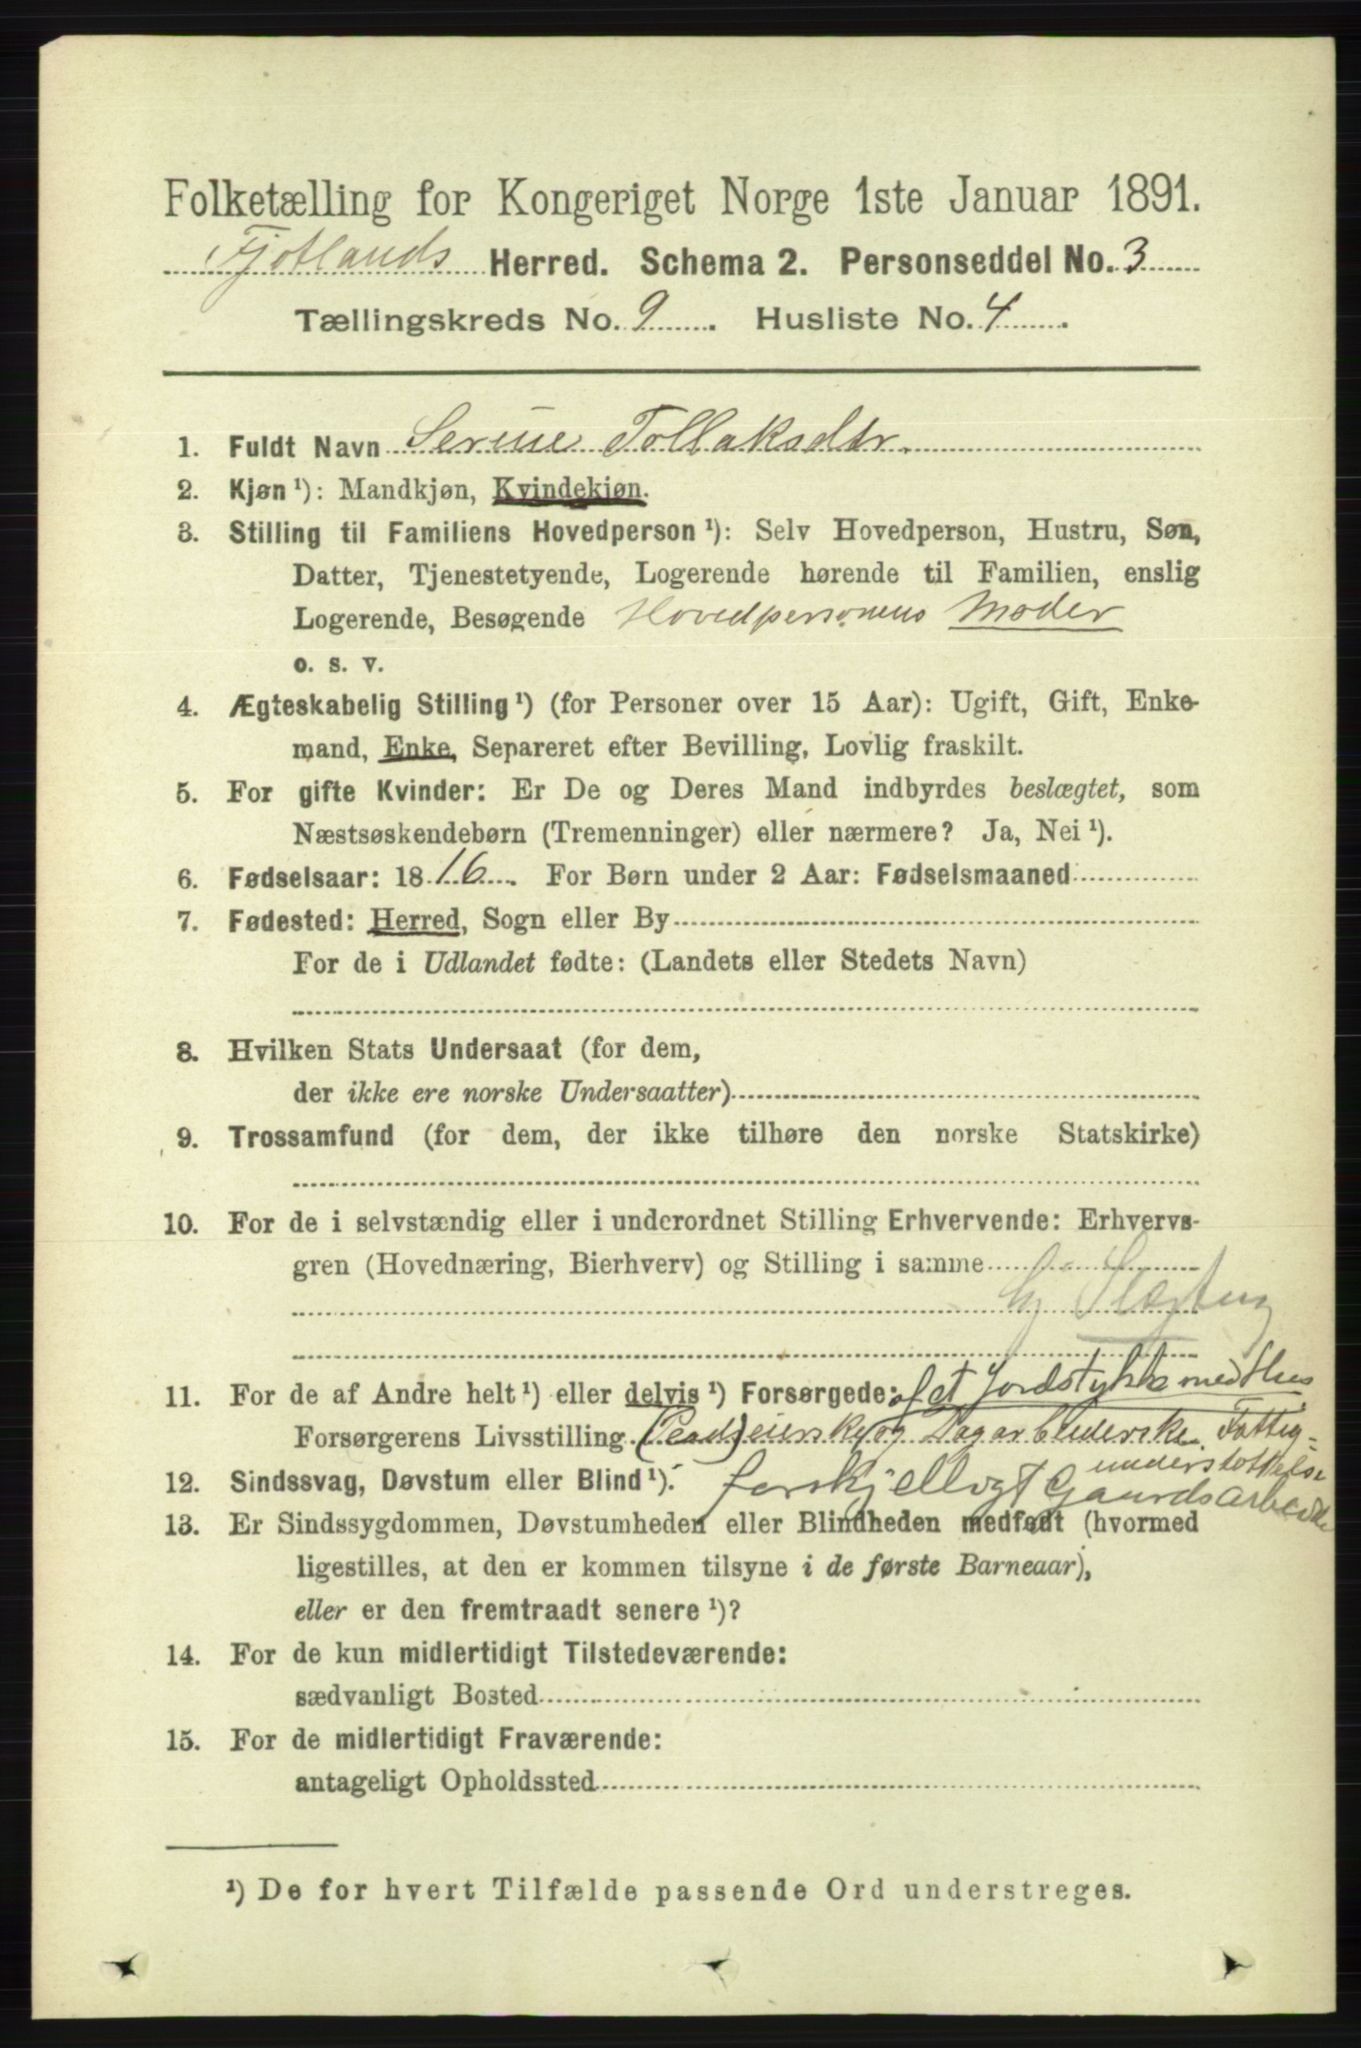 Folketælling for Kongeriget Norge 1ste Januar 1891.
Fjotlands Herred. Schema 2. Personseddel No. 3
Tællingskreds No. 9. Husliste No. 4.
1. Fuldt Navn Serine Tollaksdtr.
2. Kjøn ¹): Mandkjøn, Kvindekjøn.
3. Stilling til Familiens Hovedperson ¹): Selv Hovedperson, Hustru, Søn,
Datter, Tjenestetyende, Logerende hørende til Familien, enslig
Logerende, Besøgende Hovedpersonens Moder
o. s. v.
4. Ægteskabelig Stilling ¹) (for Personer over 15 Aar): Ugift, Gift, Enke-
mand, Enke, Separeret efter Bevilling, Lovlig fraskilt.
5. For gifte Kvinder: Er De og Deres Mand indbyrdes beslægtet, som
Næstsøskendebørn (Tremenninger) eller nærmere? Ja, Nei ¹).
6. Fødselsaar: 1816. For Børn under 2 Aar: Fødselsmaaned
7. Fødested: Herred, Sogn eller By
For de i Udlandet fødte: (Landets eller Stedets Navn)
8. Hvilken Stats Undersaat (for dem,
der ikke ere norske Undersaatter)
9. Trossamfund (for dem, der ikke tilhøre den norske Statskirke)
10. For de i selvstændig eller i underordnet Stilling Erhvervende: Erhvervs-
gren (Hovednæring, Bierhverv) og Stilling i samme
11. For de af Andre helt ¹) eller delvis ¹) Forsørgede: af et Jordstykke med Hus
Forsørgerens Livsstilling eierske og Dagarbeiderske. Fattig-
understøttelse
12. Sindssvag, Døvstum eller Blind ¹). forskjelligt Gaardsarbeide
13. Er Sindssygdommen, Døvstumheden eller Blindheden medfødt (hvormed
ligestilles, at den er kommen tilsyne i de første Barneaar),
eller er den fremtraadt senere ¹)?
14. For de kun midlertidigt Tilstedeværende:
sædvanligt Bosted
15. For de midlertidigt Fraværende:
antageligt Opholdssted
¹) De for hvert Tilfælde passende Ord understreges.